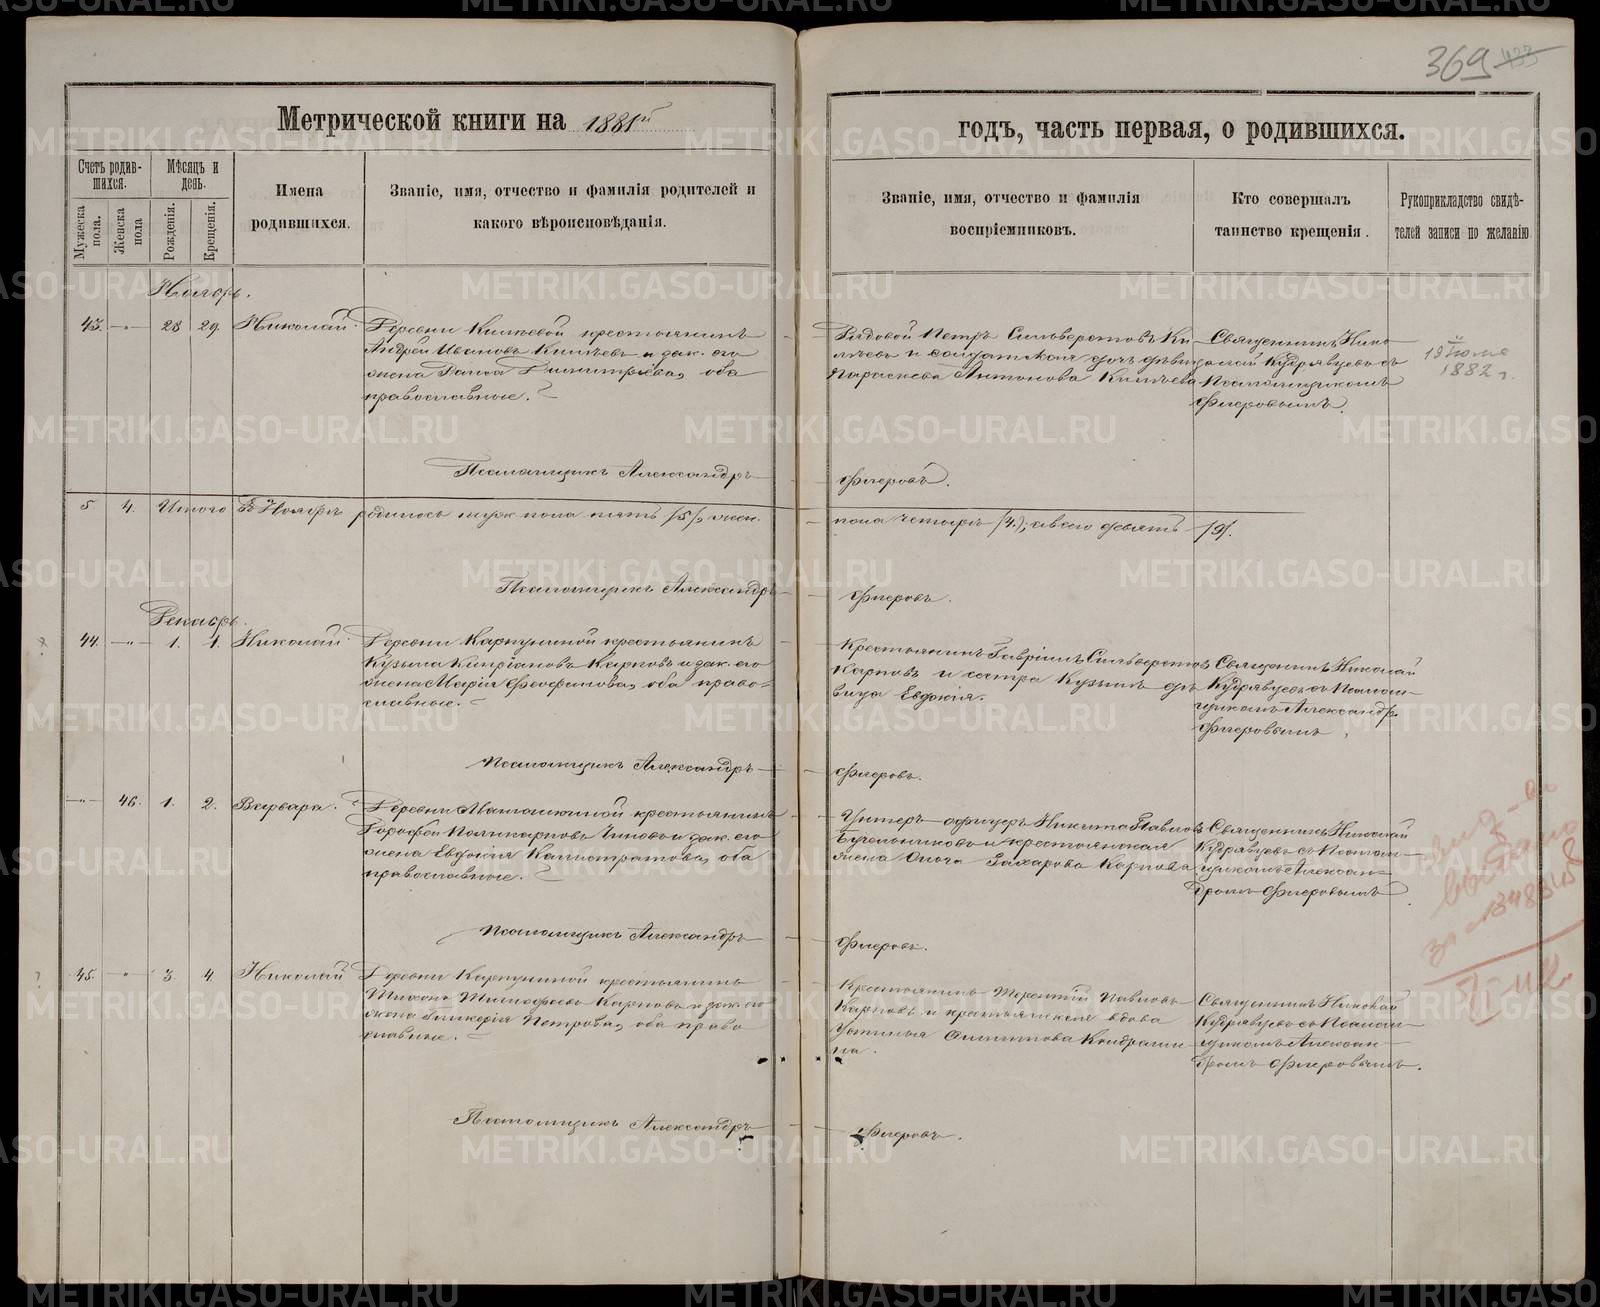 369 433
Метрической книги на 1881й
годъ, часть первая, о родившихся.
Счетъ родив-
шихся.
Мѣсяцъ и
день.
Мужеска
пола.
Женска
пола
Рожденія.
Крещенія.
Имена
родившихся.
Званіе, имя, отчество и фамилія родителей и
какого вѣроисповѣданія.
Званіе, имя, отчество и фамилія
воспріемниковъ.
Кто совершалъ
таинство крещенія.
Рукоприкладство свидѣ-
телей записи по желанію
Ноябрь.
43. —„— 28 29. Николай.
Деревни крестьянинъ
Андрей Ивановъ и зак. его
жена Димитріева, оба
православные.
Рядовой Петръ Сильверстовъ
и солдатская дочь дѣвица
Параскева Антонова
Священникъ Нико-
лай Кудрявцевъ съ
Псаломщикомъ
Фигеровымъ.
1882 г.
Псаломщикъ Александръ
Фигеровъ.
5 4. Итого Въ Ноябрѣ родилось муж. пола пять /5/, жен.
пола четыре /4/, а всего девять /9/.
Псаломщикъ Александръ
Фигеровъ.
Декабрь.
44. —„— 1. 1. Николай.
Деревни Карпушиной крестьянинъ
Кузьма Кипріановъ Карповъ и зак. его
жена Марія оба право-
славные.
Крестьянинъ Гавріилъ Сильверстовъ
Карповъ и сестра Кузьмы дѣ-
вица Евдокія.
Священникъ Николай
Кудрявцевъ съ Псалом-
щикомъ Александр.
Фигеровымъ.
Псаломщикъ Александръ
Фигеровъ.
—„— 46. 1. 2. Варвара.
Деревни крестьянинъ
Дорофей Поликарповъ и зак. его
жена Евдокія Калистратова, оба
православные.
Унтеръ-офицеръ Никита Павловъ
и крестьянская
жена Захарова Карпова
Священникъ Николай
Кудрявцевъ съ Псалом-
щикомъ Алексан-
дромъ Фигеровымъ.
Псаломщикъ Александръ
Фигеровъ.
45. „ 3. 4. Николай
Деревни Карпушиной крестьянинъ
Тимофеевъ Карповъ и зак. его
жена Гликерія Петрова, оба право
славные.
Крестьянинъ Терентій Павловъ
Карповъ и крестьянская вдова
Устинья Филиппова Кондраши-
на.
Священникъ Николай
Кудрявцевъ съ Псалом-
щикомъ Алексан-
дромъ Фигеровымъ.
Псаломщикъ Александръ
Фигеровъ.
METRIKI.GASO-URAL.RU